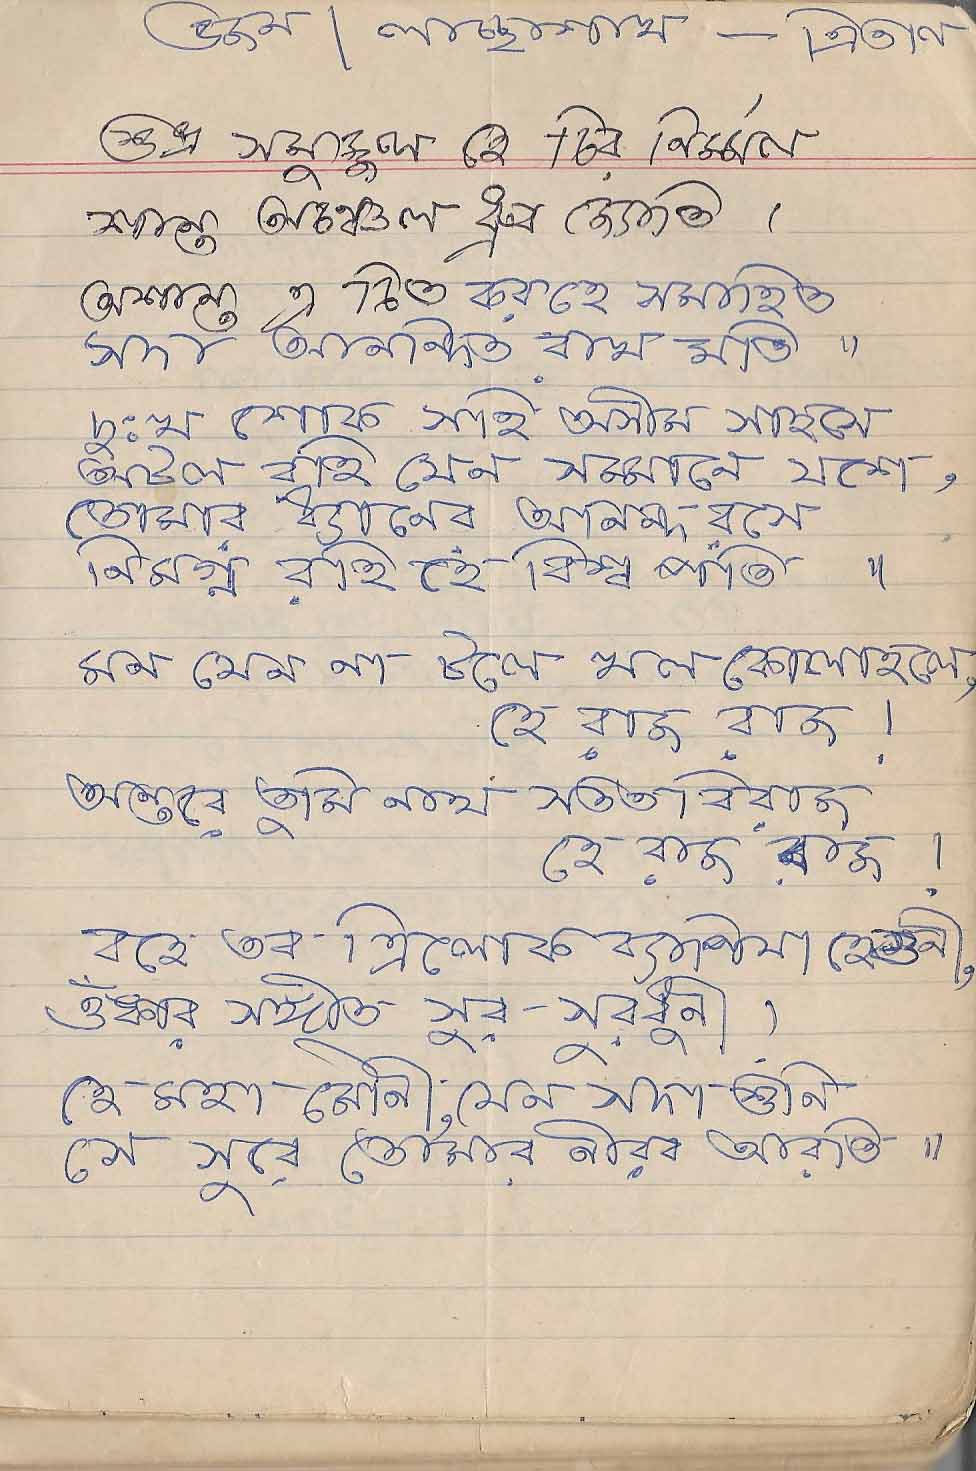 ভজন | লাচ্ছাশাখ — ত্রিতাল
শুভ্র সমুজ্জ্বল হে চির নির্ম্মল
শান্ত অচঞ্চল ধ্রুব জ্যোতি ।
অশান্ত এ চিত করহে সমাহিত
সদা আনন্দিত রাখ মতি ॥
দুঃখ শোক সহি অসীম সাহসে
অটল রহি যেন সম্মানে যশে,
তোমার ধ্যানের আনন্দ রসে
নিমগ্ন রহি হে বিশ্ব পতি ॥
মন যেন না টলে খল কোলাহলে,
হে রাজ রাজ !
অন্তরে তুমি নাথ সতত বিরাজ
হে রাজ রাজ !
বহে তব ত্রিলোক ব্যাপিয়া হেগুনী,
ওঁঙ্কার সঙ্গীত সুর-সুরধুনী ।
হে মহা মৌনী, যেন সদা শুনি
সে সুরে তোমার নীরব আরতি ॥